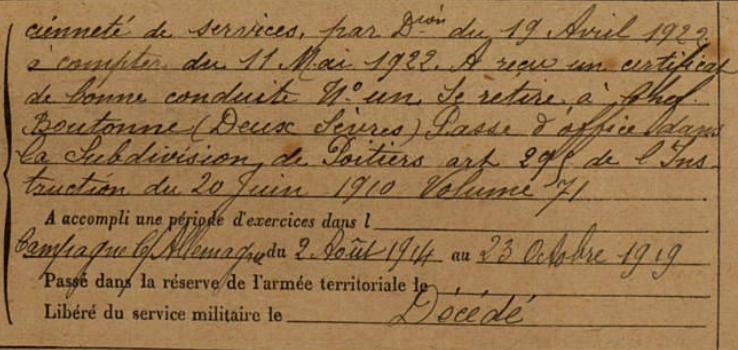 cienneté de services, par D^ion du 19 Avril 1922
à compter du 11 Mai 1922. A reçu un certificat
de bonne conduite N° un Se retire à Chef.
Boutonne (Deux Sèvres) Passe d'office dans
la Subdivision de Poitiers art 295 de l'Ins-
truction du 20 Juin 1910 Volume 71
A accompli une période d'exercices dans l
Campagne C/ Allemagne du 2 Août 1914 au 23 Octobre 1919
Passé dans la réserve de l'armée territoriale le
Libéré du service militaire le Décédé